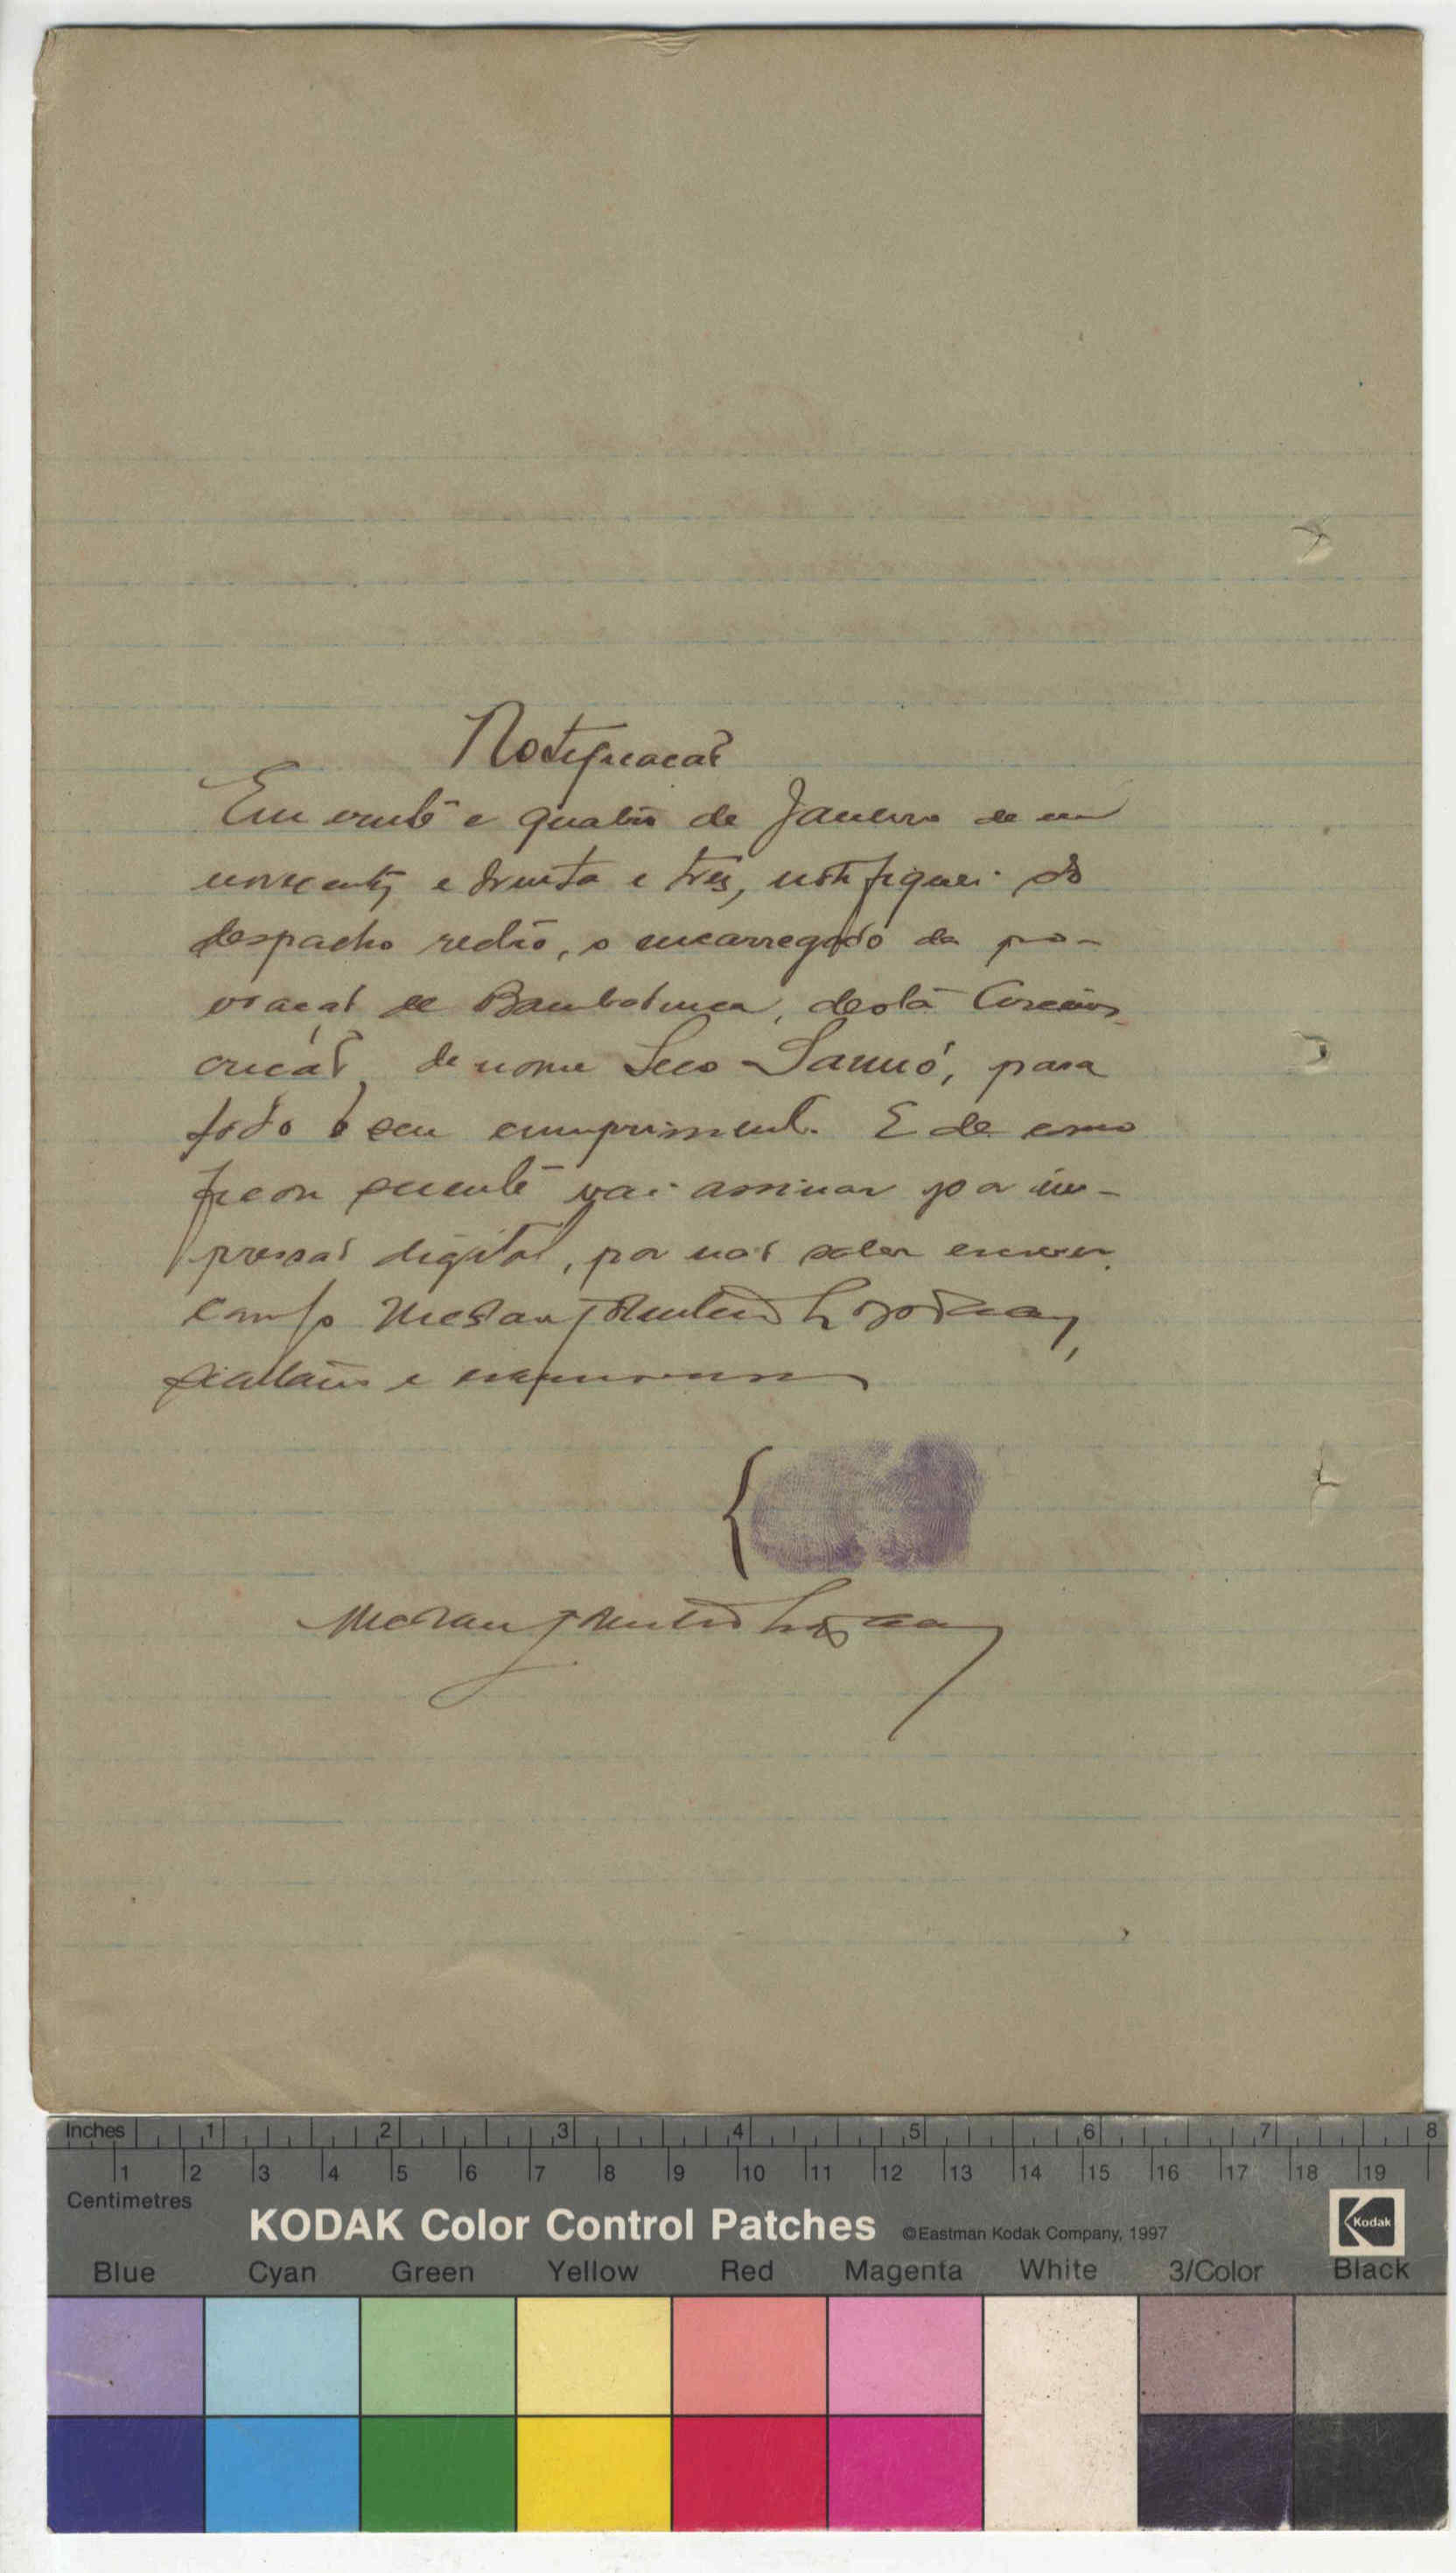 Notificação
Em vinte e quatro de Janeiro de mil
novecentos e trinta e três, notifiquei do
despacho retro, o encarregado da po-
voação de Bambadinca, desta Circuns-
crição, de nome Seco Sanhó, para
todo o seu cumprimento. E de como
ficou ciente vai assinar por im-
pressão digital, por não saber escrever,
comigo
escrivão e
Inches 1 2 3 4 5 6 7 8
1 2 3 4 5 6 7 8 9 10 11 12 13 14 15 16 17 18 19
Centimetres
KODAK Color Control Patches ©Eastman Kodak Company, 1997 Kodak
Blue Cyan Green Yellow Red Magenta White 3/Color Black